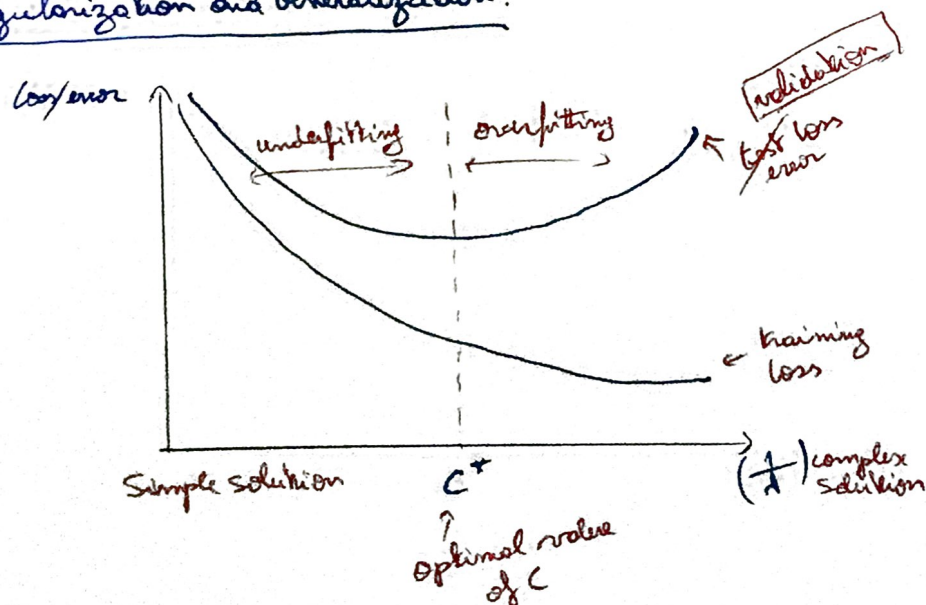 gularization and Generalization:
loss/error
underfitting
overfitting
validation
test loss
error
training
loss
Simple solution
C*
(1/λ) complex
solution
optimal value
of C